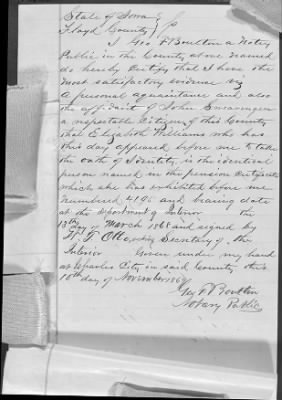 State of Iowa
Floyd County
I Geo F Boulton a Notary
Public in the County above named
do hereby Certify that I have the
most satisfactory evidence viz
A personal acquaintance and also
the affidavit of John
a respectable Citizen of this County
that Elizabeth Williams who has
this day appeared before me to take
the oath of Identity is the identical
person named in the pension Certificate
which she has exhibited before me
numbered 4195 and bearing date
at the Department of Interior the
13th day of March 1868 and signed by
W. T. Otto acting Secretary of the
Interior Given under my hand
at Charles City in said County this
10th day of November 186
Geo F Boulton
Notary Public